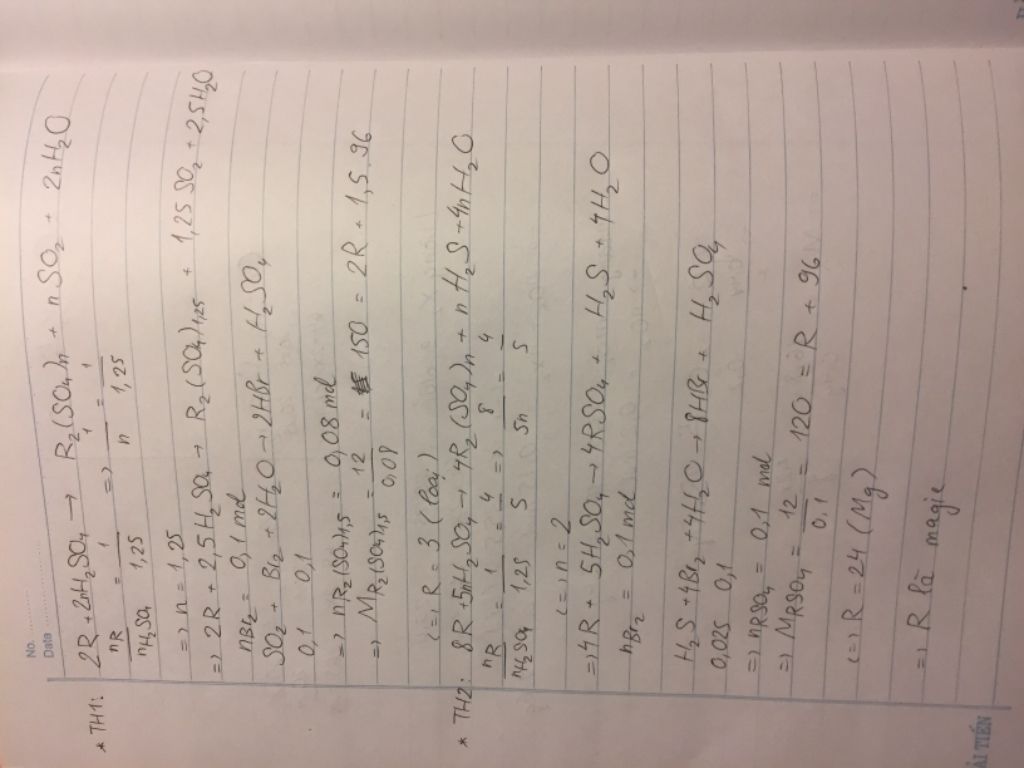 No. ............
Date ............
* TH1: 2R + 2nH₂SO₄ → R₂(SO₄)n + nSO₂ + 2nH₂O
nR / nH₂SO₄ = 1 / 1,25 => 1 / n = 1 / 1,25
=> n = 1,25
=> 2R + 2,5H₂SO₄ → R₂(SO₄)1,25 + 1,25SO₂ + 2,5H₂O
nBr₂ = 0,1 mol
SO₂ + Br₂ + 2H₂O → 2HBr + H₂SO₄
0,1 0,1
=> nR₂(SO₄)1,5 = 0,08 mol
=> MR₂(SO₄)1,5 = 12 / 0,08 = 150 = 2R + 1,5.96
<=> R = 3 (loại)
* TH2: 8R + 5nH₂SO₄ → 4R₂(SO₄)n + nH₂S + 4nH₂O
nR / nH₂SO₄ = 1 / 1,25 = 4 / 5 => 8 / 5n = 4 / 5
<=> n = 2
=> 4R + 5H₂SO₄ → 4RSO₄ + H₂S + 4H₂O
nBr₂ = 0,1 mol
H₂S + 4Br₂ + 4H₂O → 8HBr + H₂SO₄
0,025 0,1
=> nRSO₄ = 0,1 mol
=> MRSO₄ = 12 / 0,1 = 120 = R + 96
<=> R = 24 (Mg)
=> R là magie
ẢI TIẾN